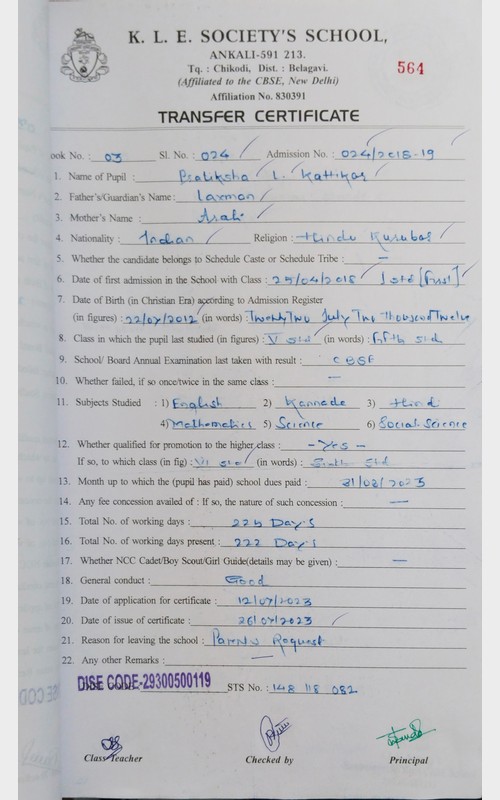 K. L. E. SOCIETY'S SCHOOL,
ANKALI-591 213.
Tq. : Chikodi, Dist. : Belagavi.
564
(Affiliated to the CBSE, New Delhi)
Affiliation No. 830391
TRANSFER CERTIFICATE
ook No. : 03 Sl. No. : 024 Admission No. : 024/2018-19
1. Name of Pupil : L. Kattikar
2. Father's/Guardian's Name : Laxman
3. Mother's Name :
4. Nationality : Indian Religion : Hindu Kurubar
5. Whether the candidate belongs to Schedule Caste or Schedule Tribe : —
6. Date of first admission in the School with Class : 25/04/2018 1 std [First]
7. Date of Birth (in Christian Era) according to Admission Register
(in figures) : 22/07/2012 (in words) : Twenty Two July Two Thousand Twelve
8. Class in which the pupil last studied (in figures) : V std (in words) : fifth std
9. School/ Board Annual Examination last taken with result : CBSE
10. Whether failed, if so once/twice in the same class : —
11. Subjects Studied : 1) English 2) Kannada 3) Hindi
4) Mathematics 5) Science 6) Social Science
12. Whether qualified for promotion to the higher class : - Yes -
If so, to which class (in fig) : VI std (in words) : Sixth std
13. Month up to which the (pupil has paid) school dues paid : 31/03/2023
14. Any fee concession availed of : If so, the nature of such concession : —
15. Total No. of working days : 225 Days
16. Total No. of working days present : 222 Days
17. Whether NCC Cadet/Boy Scout/Girl Guide(details may be given) : —
18. General conduct : Good
19. Date of application for certificate : 12/07/2023
20. Date of issue of certificate : 26/07/2023
21. Reason for leaving the school : Request
22. Any other Remarks : —
DISE CODE-29300500119 STS No. : 148 118 082
Class Teacher Checked by Principal